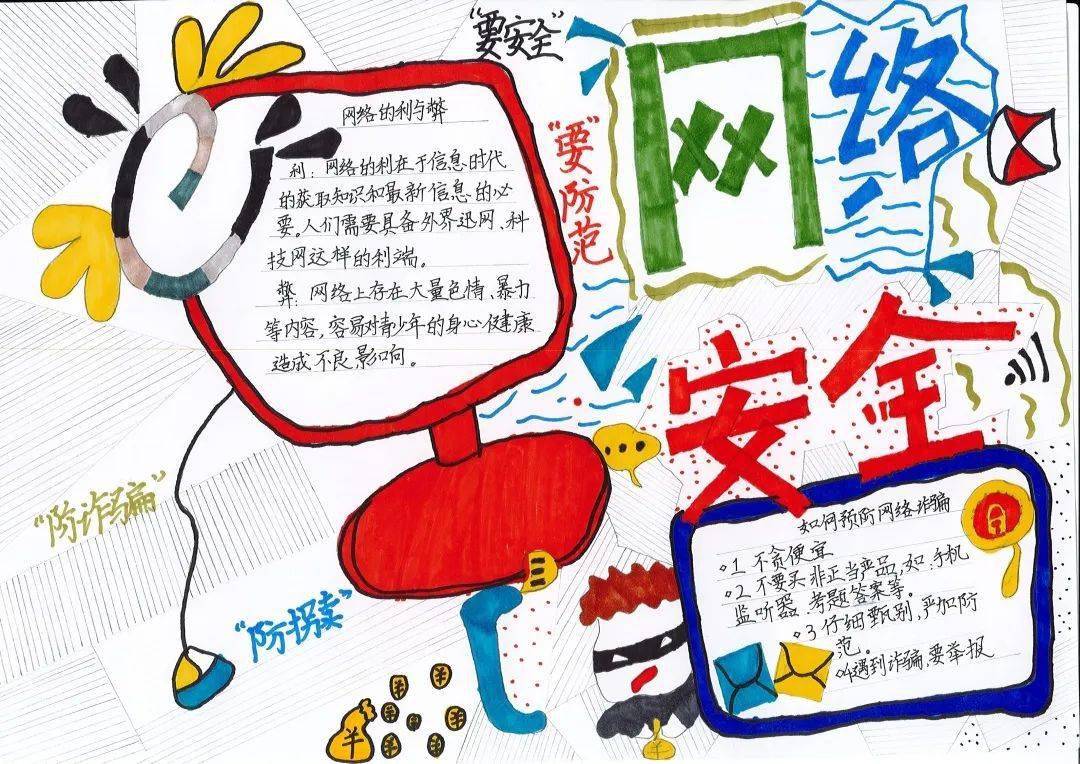 "要安全"
网络
安全
"要"防范
网络的利与弊
利:网络的利在于信息时代
的获取知识和最新信息的必
要。人们需要具备外界迅网、科
技网这样的利端。
弊:网络上存在大量色情、暴力
等内容,容易对青少年的身心健康
造成不良影响。
"防诈骗"
"防拐卖"
如何预防网络诈骗
1 不贪便宜
2 不要买非正当产品,如:手机
监听器 考题答案等。
3 仔细甄别,严加防
范。
4遇到诈骗要举报